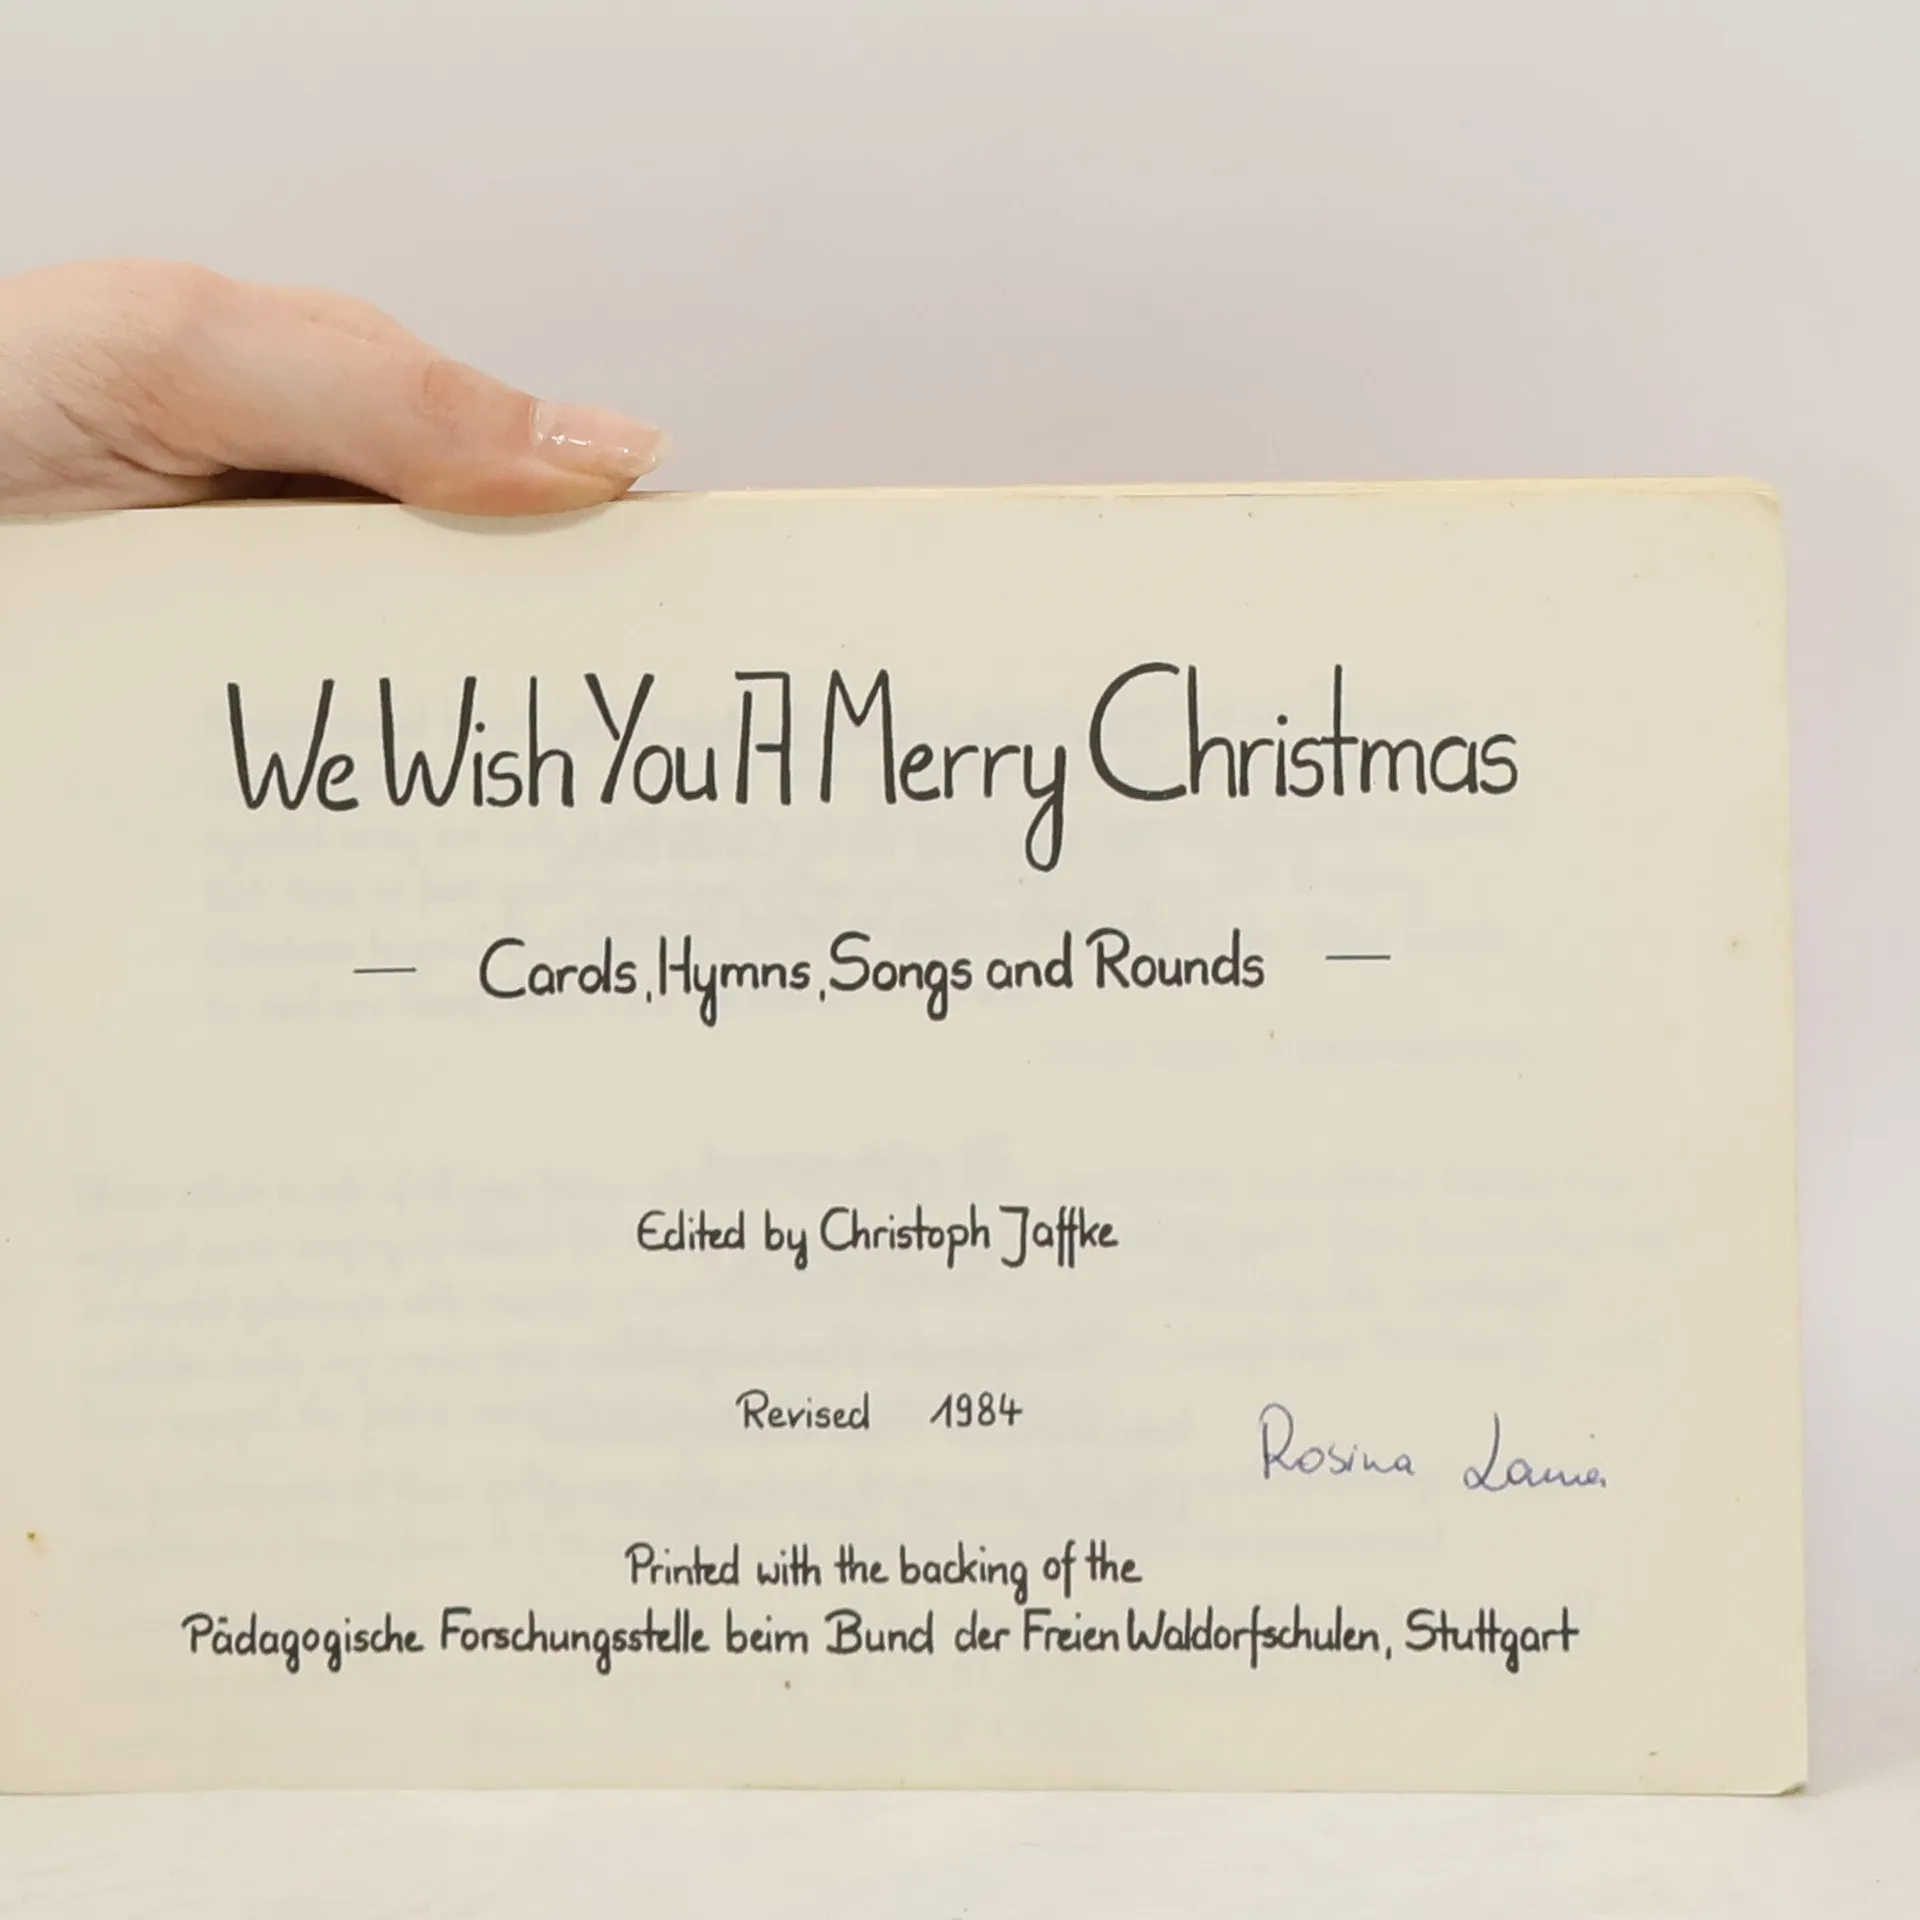 We Wish You A Merry Christmas
— Carols, Hymns, Songs and Rounds —
Edited by Christoph Jaffke
Revised 1984
Rosina
Printed with the backing of the
Pädagogische Forschungsstelle beim Bund der Freien Waldorfschulen, Stuttgart